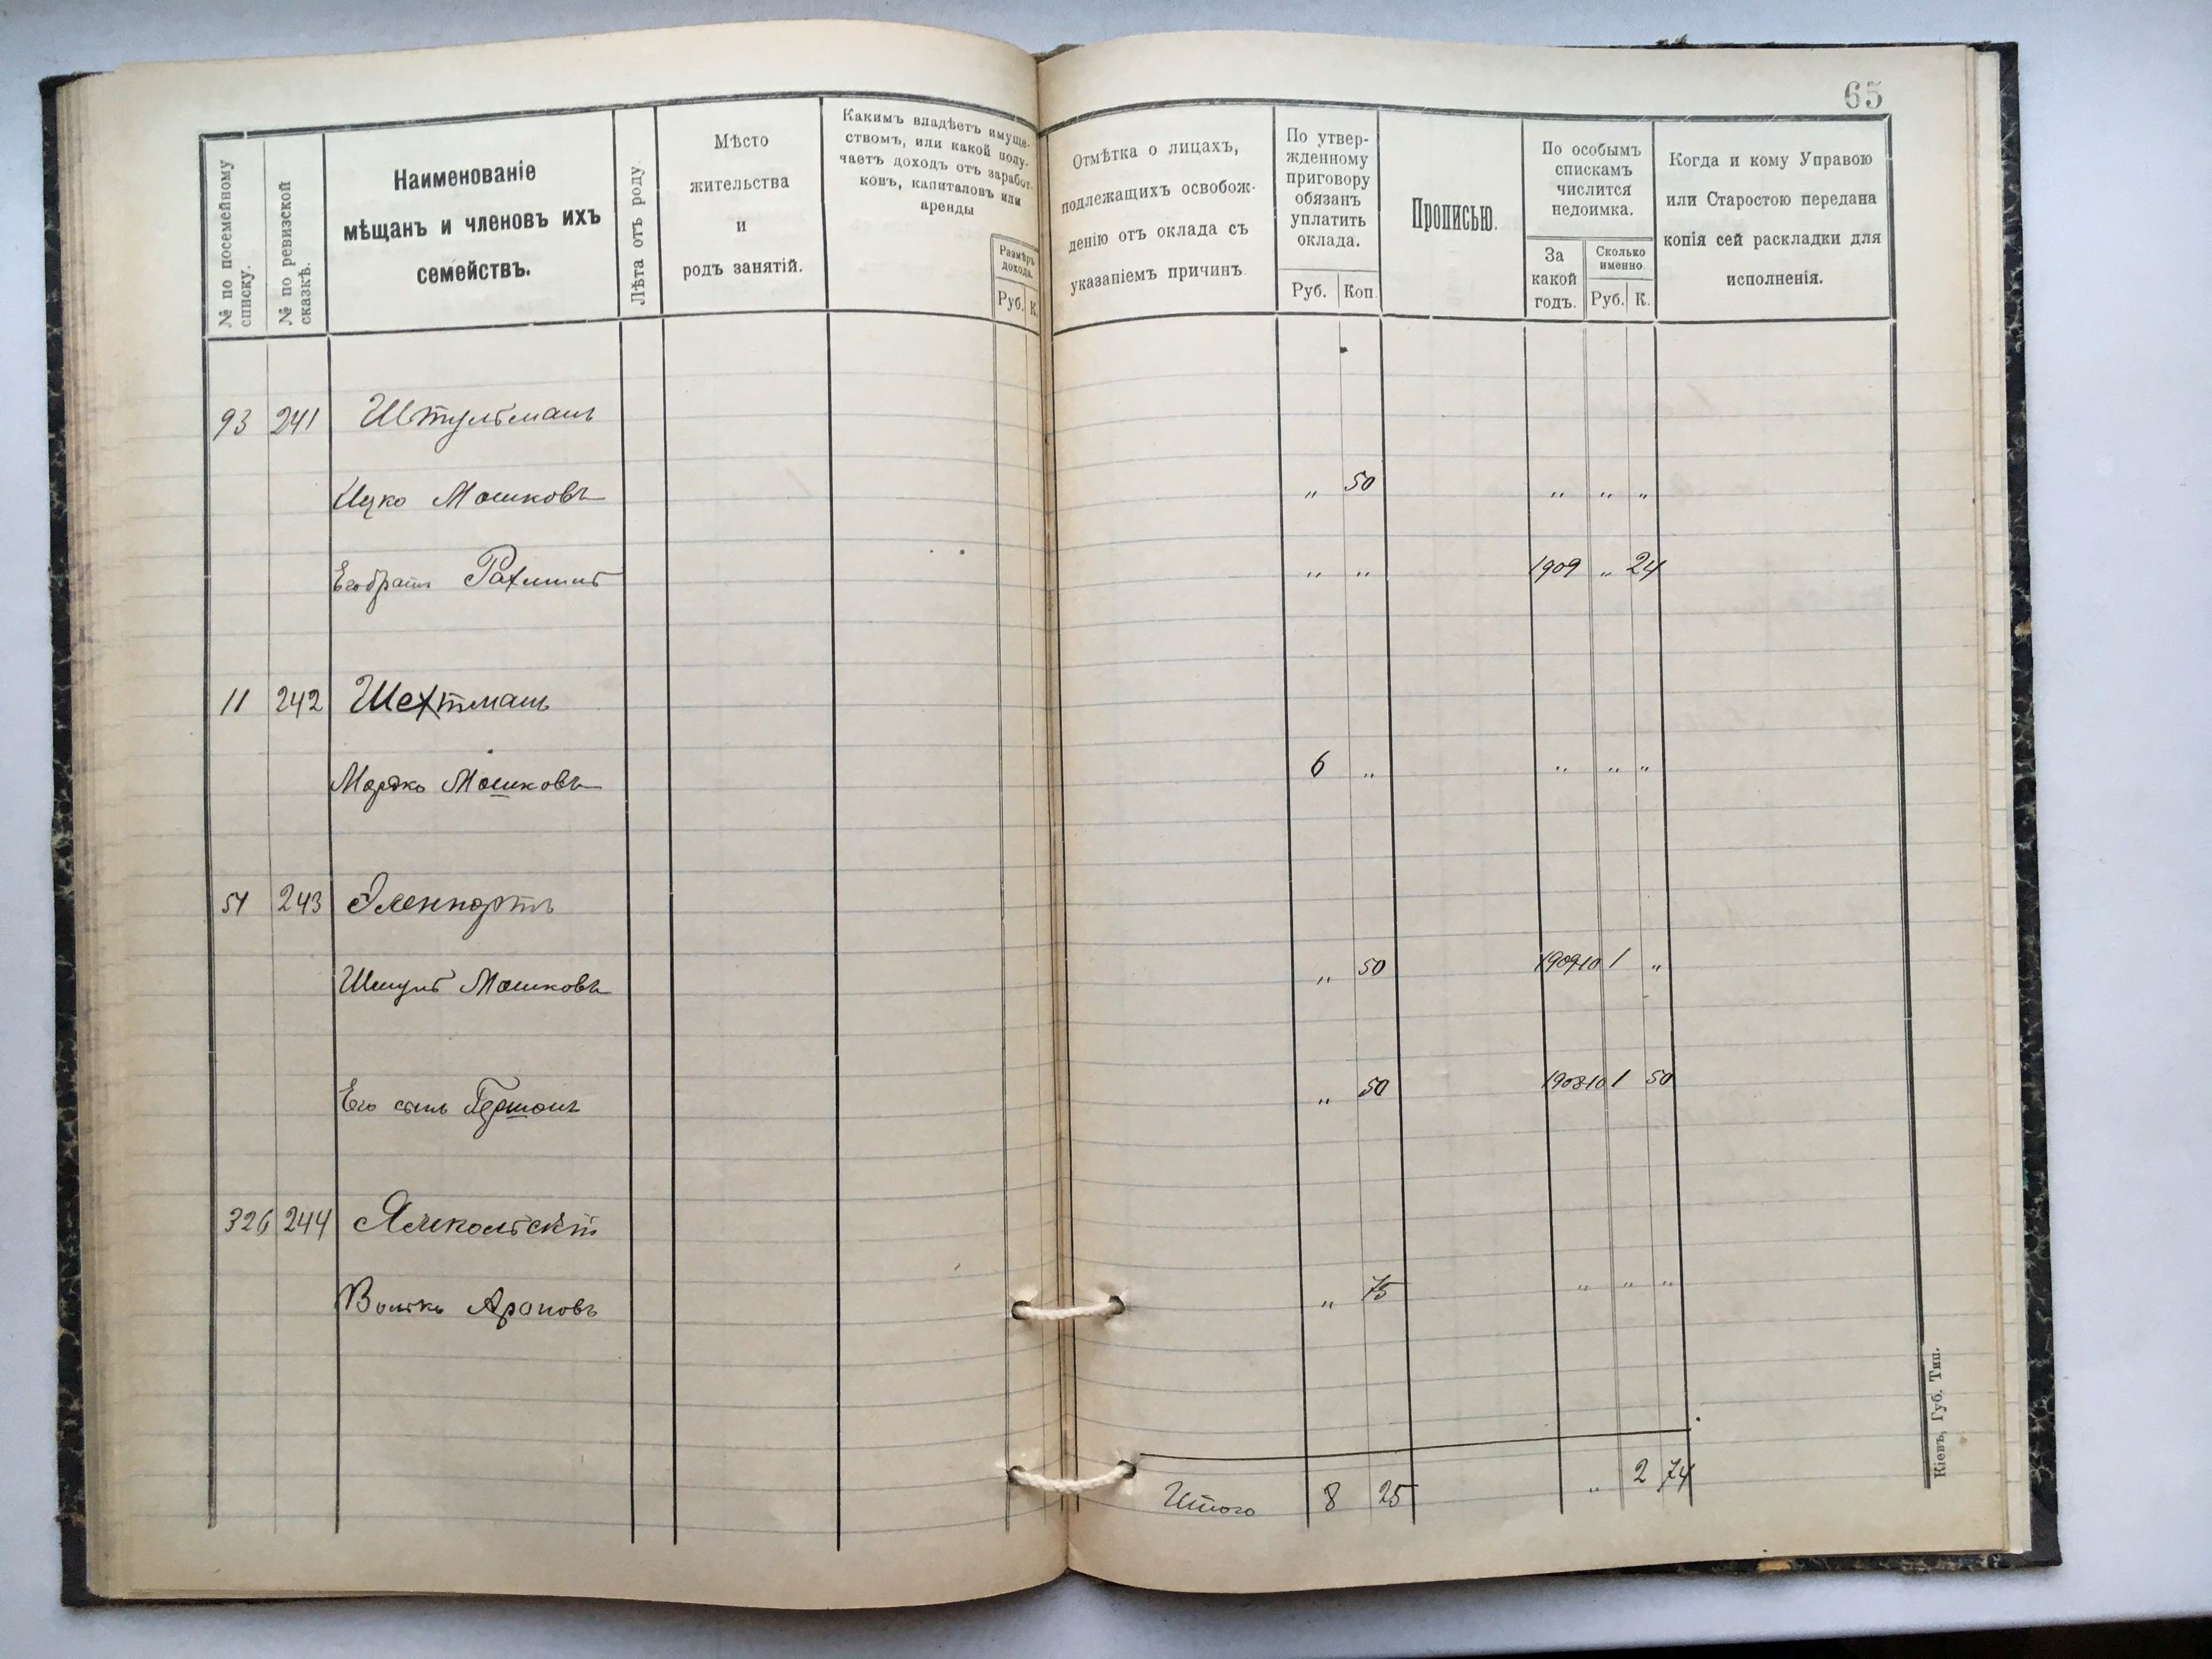 65
№ по посемейному
списку.
№ по ревизской
сказкѣ.
Наименованіе
мѣщанъ и членовъ ихъ
семействъ.
Лѣта отъ роду.
Мѣсто
жительства
и
родъ занятій.
Какимъ владѣетъ имуще-
ствомъ, или какой полу-
чаетъ доходъ отъ заработ-
ковъ, капиталовъ или
аренды
Размѣръ
дохода.
Руб. К.
Отмѣтка о лицахъ,
подлежащихъ освобож-
денію отъ оклада съ
указаніемъ причинъ
По утвер-
жденному
приговору
обязанъ
уплатить
оклада.
Руб. Коп.
Прописью.
По особымъ
спискамъ
числится
недоимка.
За
какой
годъ.
Сколько
именно.
Руб. К.
Когда и кому Управою
или Старостою передана
копія сей раскладки для
исполненія.
93 241 Штульманъ
Ицко Мошковъ „ 50 „ „ „
Его братъ Рахмиль „ „ 1909 „ 24
11 242 Шехтманъ
Мордко Мошковъ 6 „ „ „ „
54 243 Эленпортъ
Шмуль Мошковъ „ 50 1909 10 1 „
Его сынъ Гершонъ „ 50 1908 10 1 50
326 244 Ямпольскій
Волько Ароновъ „ 75 „ „ „
Итого 8 25 „ 2 74
Кіевъ, Губ. Тип.